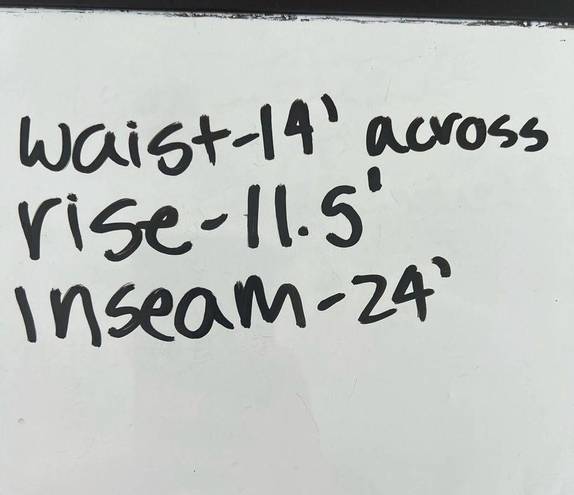 waist-14' across
rise-11.5'
inseam-24'